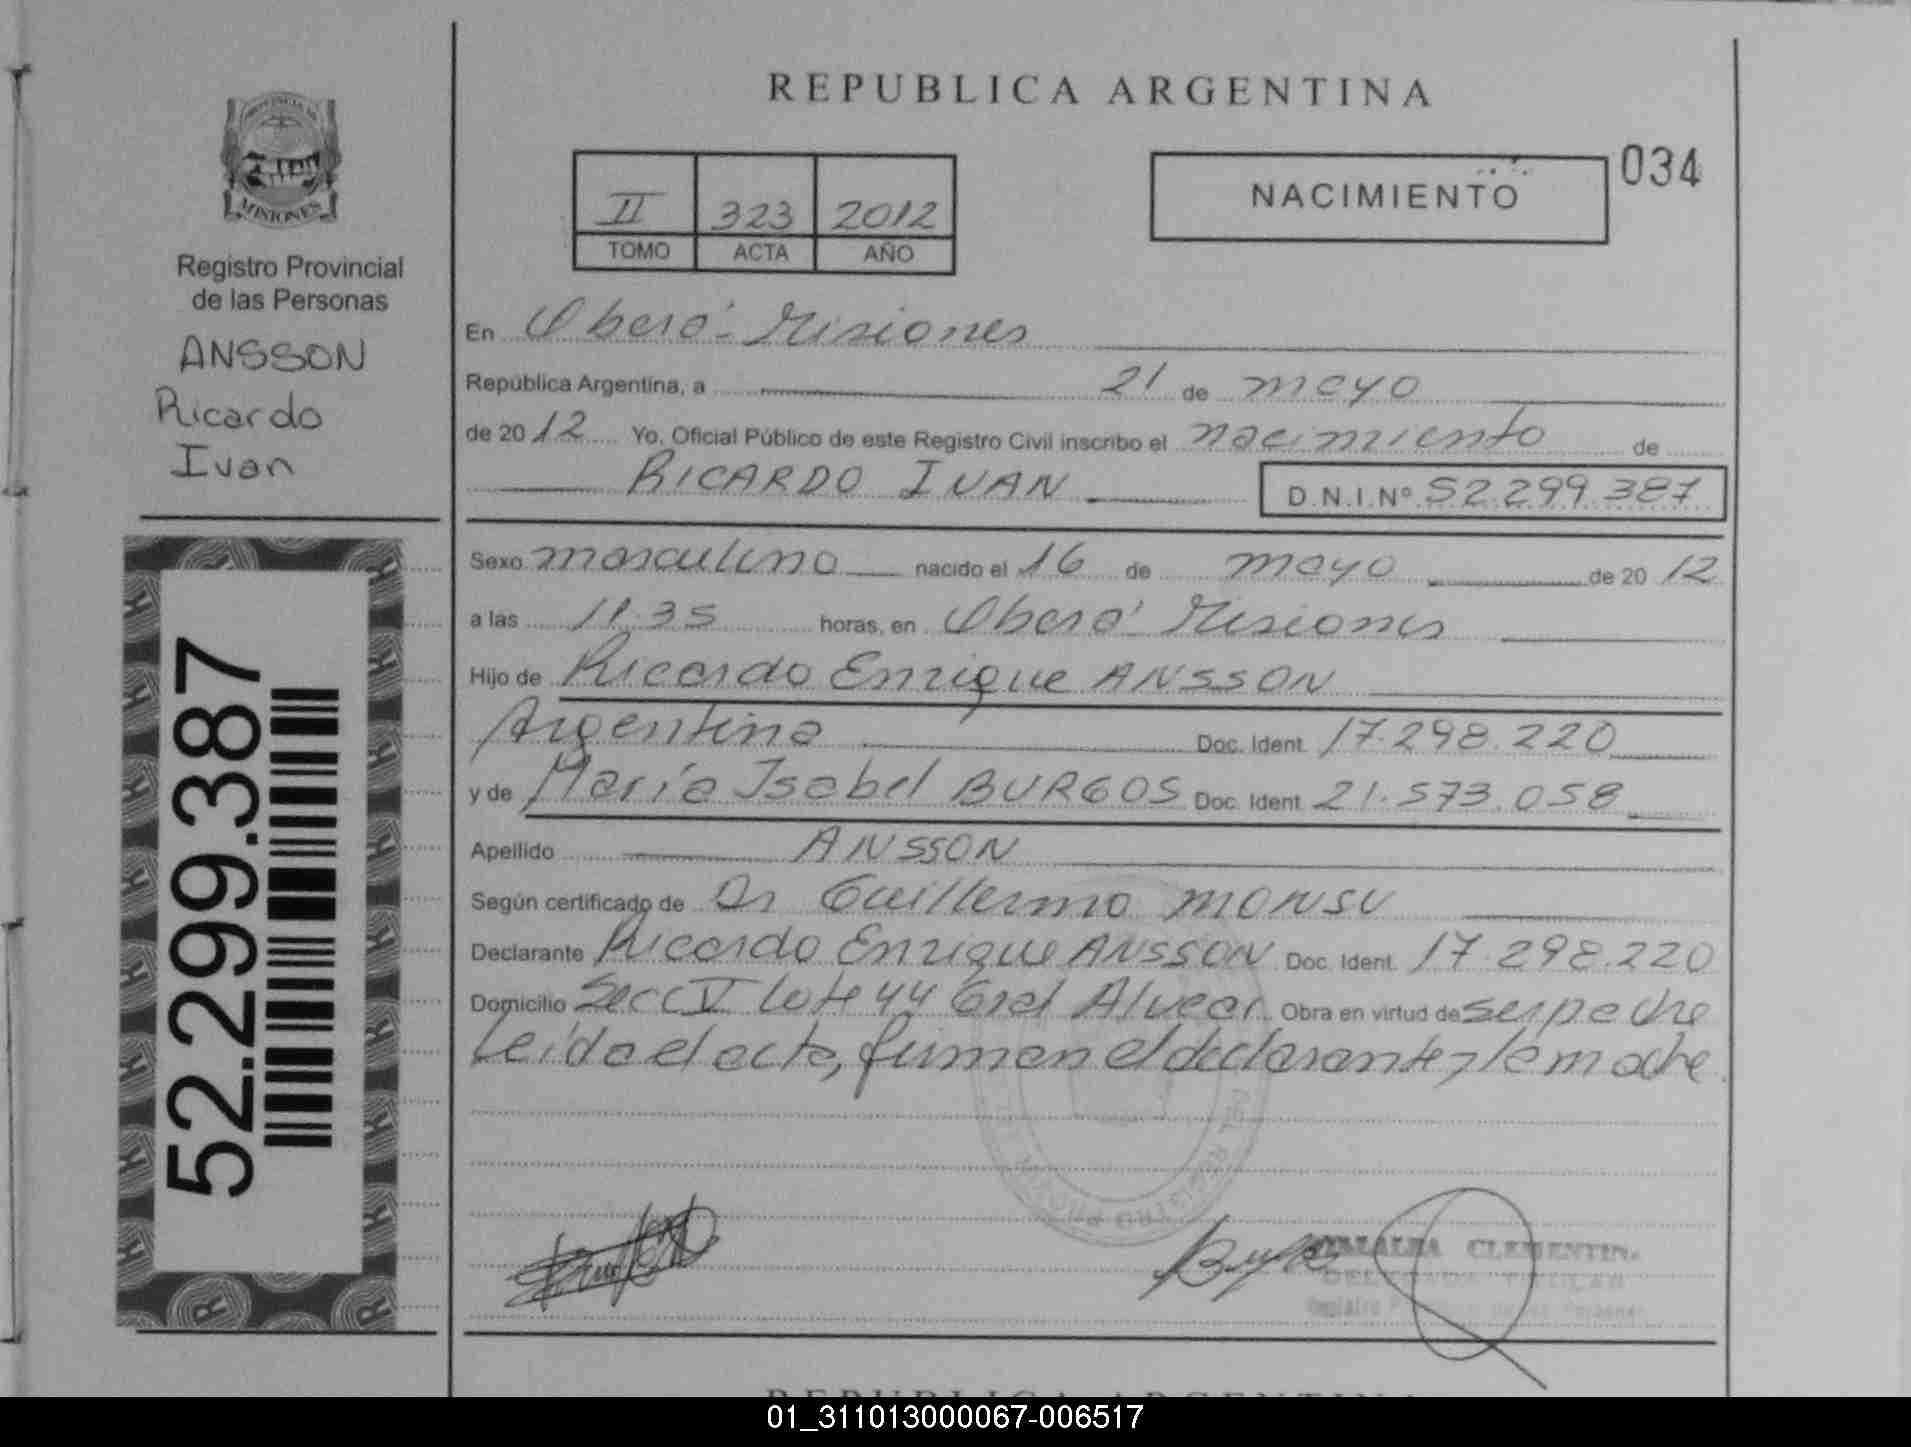 REPUBLICA ARGENTINA
PROVINCIA DE
MISIONES
Registro Provincial
de las Personas
ANSSON
Ricardo
Ivan
52.299.387
II 323 2012
TOMO ACTA AÑO
NACIMIENTO
034
En Oberá - Misiones
República Argentina, a 21 de mayo
de 2012 Yo, Oficial Público de este Registro Civil inscribo el nacimiento de
RICARDO IVAN D.N.I.Nº 52.299.387
Sexo masculino nacido el 16 de mayo de 2012
a las 11.35 horas, en Oberá Misiones
Hijo de Ricardo Enrique ANSSON
Argentina Doc. Ident. 17.298.220
y de María Isabel BURGOS Doc. Ident. 21.573.058
Apellido ANSSON
Según certificado de Dr Guillermo MONSU
Declarante Ricardo Enrique ANSSON Doc. Ident. 17.298.220
Domicilio Secc V Lote 44 Gral Alvear Obra en virtud de ser padre
Leída el acta, firman el declarante y la madre
CLEMENTIN
REPUBLICA ARGENTINA
01_311013000067-006517